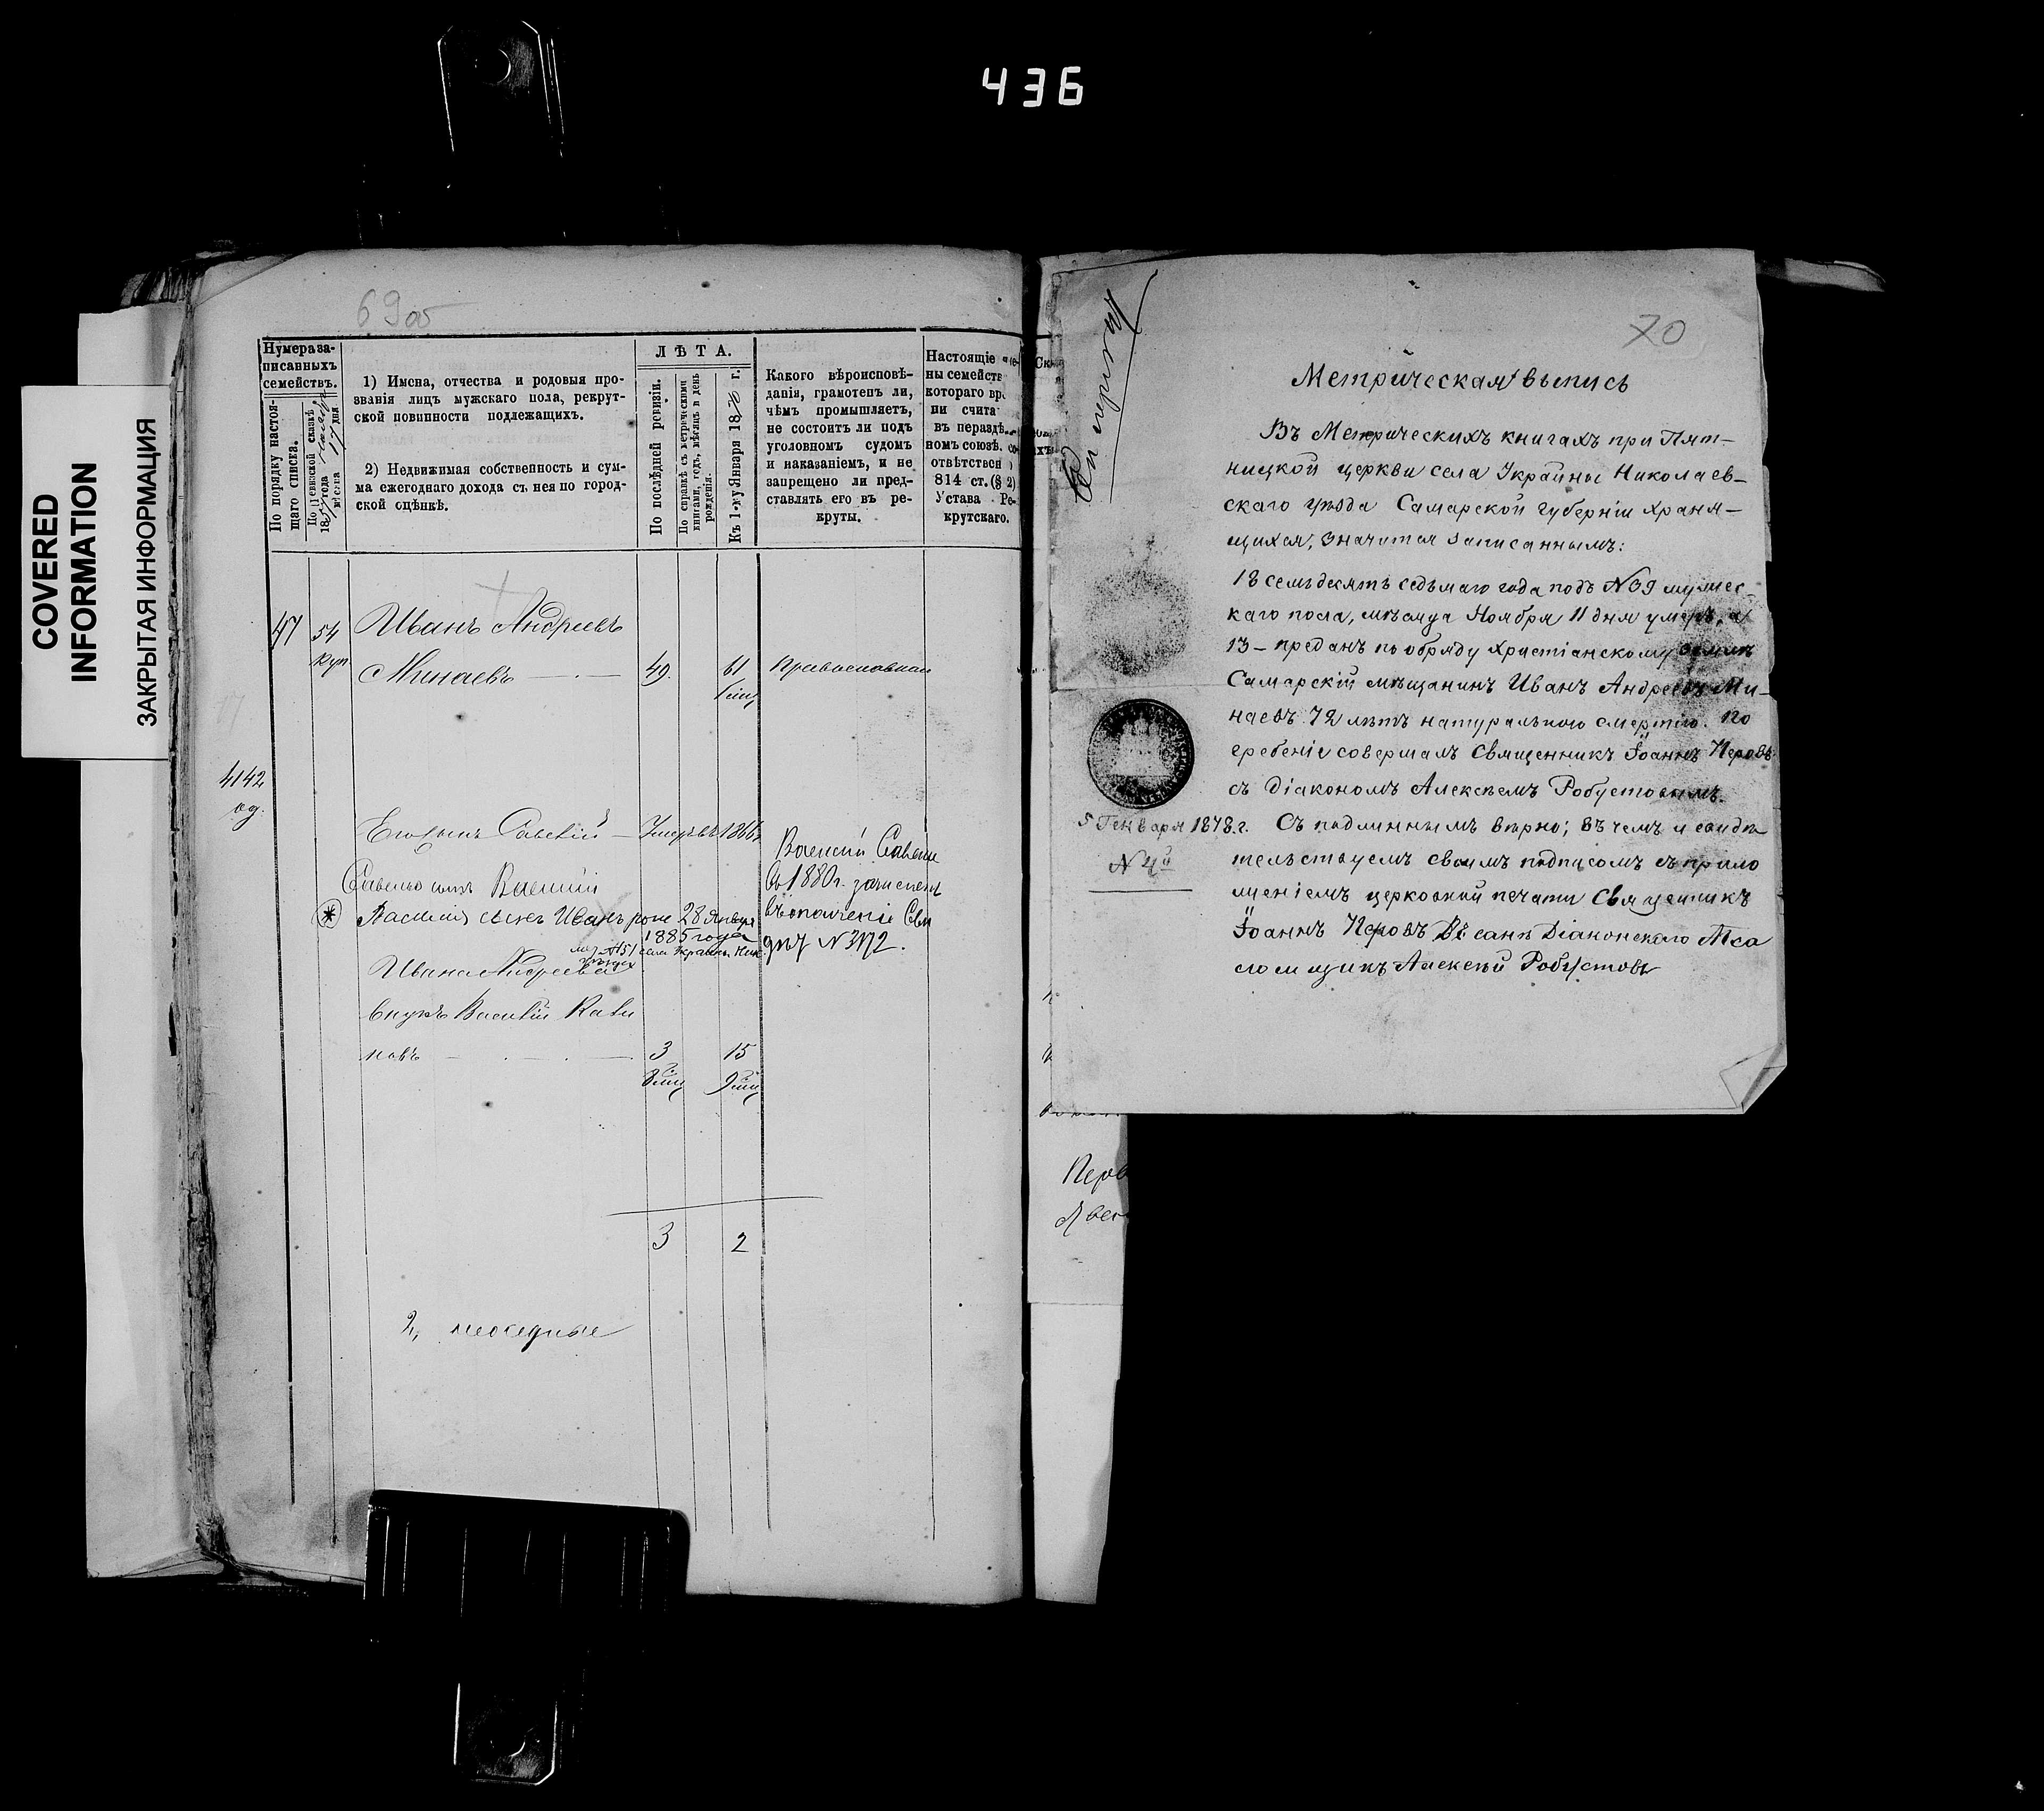 436
COVERED
INFORMATION
ЗАКРЫТАЯ ИНФОРМАЦИЯ
69об
Нумера за-
писанныхъ
семействъ.
По порядку настоя-
щаго списка.
По ревизской сказкѣ
185 года
мѣсяца дня
1) Имена, отчества и родовыя про-
званія лицъ мужскаго пола, рекрут-
ской повинности подлежащихъ.
2) Недвижимая собственность и сум-
ма ежегоднаго дохода съ нея по город-
ской оцѣнкѣ.
ЛѢТА.
По послѣдней ревизіи.
По справкѣ съ метрическими
книгами, годъ, мѣсяцъ и день
рожденія.
Къ 1-му Января 1870 г.
Какого вѣроисповѣ-
данія, грамотенъ ли,
чѣмъ промышляетъ,
не состоитъ ли подъ
уголовномъ судомъ
и наказаніемъ, и не
запрещено ли пред-
ставлять его въ ре-
круты.
Настоящіе
ны семейств
котораго вр
ни счита
въ нераздѣ
номъ союзѣ.
отвѣтствен
814 ст. (§ 2)
Устава Ре-
крутскаго.
47 54 Иванъ Андреевъ
куп. Минаевъ 49. 61 Православнаго
4142
Савелій Умеръ въ 1866
Савелья сынъ Василій
Василія сынъ Иванъ род. 28 Января
1885 года
№ 51 села Украины Ник.
уѣзда
Василій Савельевъ
въ 1880 г. зачисленъ
въ ополченіе Сви
дѣт № 3172.
Ивана Андреева
внукъ Василій
новъ 3 15
8 мц 9 мц
3 2
2,
70
Метрическая выпись
Въ Метрическихъ книгахъ при Пят-
ницкой церкви села Украины Николаев-
скаго уѣзда Самарской губерніи храня-
щихся, значится записаннымъ:
18 семьдесятъ седьмаго года подъ № 39 мужес-
каго пола, мѣсяца Ноября 11 дня умеръ, а
13 – преданъ по обряду христіанскому землѣ
Самарскій мѣщанинъ Иванъ Андреевъ Ми-
наевъ 72 лѣтъ натуральною смертію. По
гребеніе совершалъ Священникъ Іоаннъ
съ Діакономъ Алексѣемъ Робустовымъ.
5 Генваря 1878. г. Съ подлиннымъ вѣрно; въ чемъ и свидѣ
№ 4й
тельствуемъ своимъ подписомъ съ прило
женіемъ церковной печати Священникъ
Іоаннъ Въ санѣ Діаконскаго Пса
ломщикъ Алексѣй Робустовъ